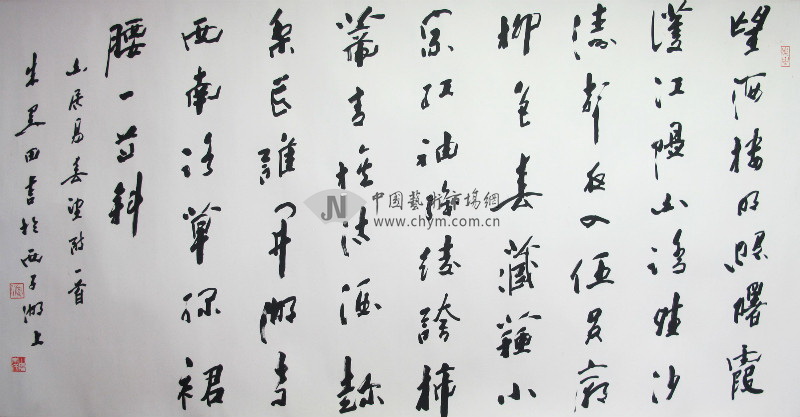 望海楼明照曙霞
護江隄白踏晴沙
涛声夜入伍员廟
柳色春藏蘇小
家红袖织绫誇柿
蒂青旗沽酒趁
梨花誰開湖寺
西南路草绿裙
腰一道斜
白居易春望诗一首
朱田书於西子湖上
JN 中國藝術市場網
www.chym.com.cn